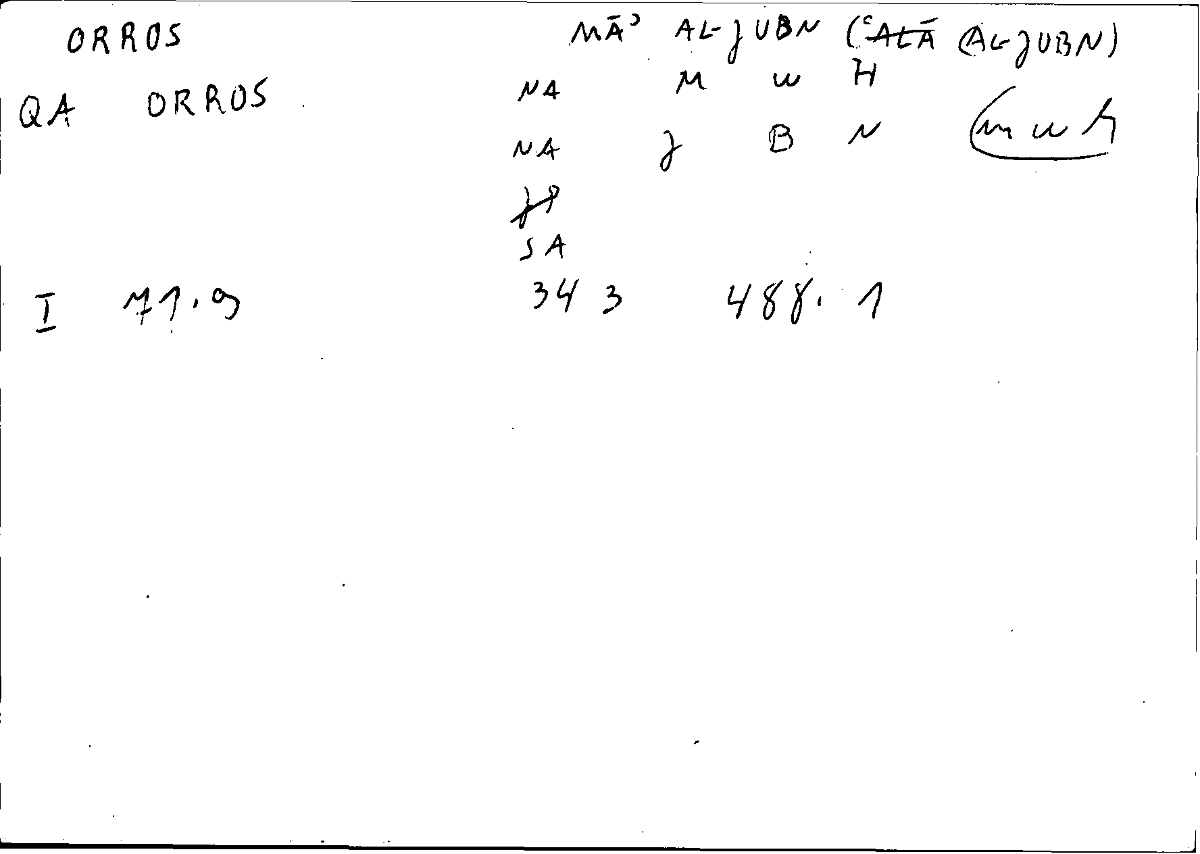 ORROS MĀʾ AL-JUBN (ʿALĀ AL-JUBN)
QA ORROS NA M W H
NA J B N mwh
SA
I 71.9 343 488.1